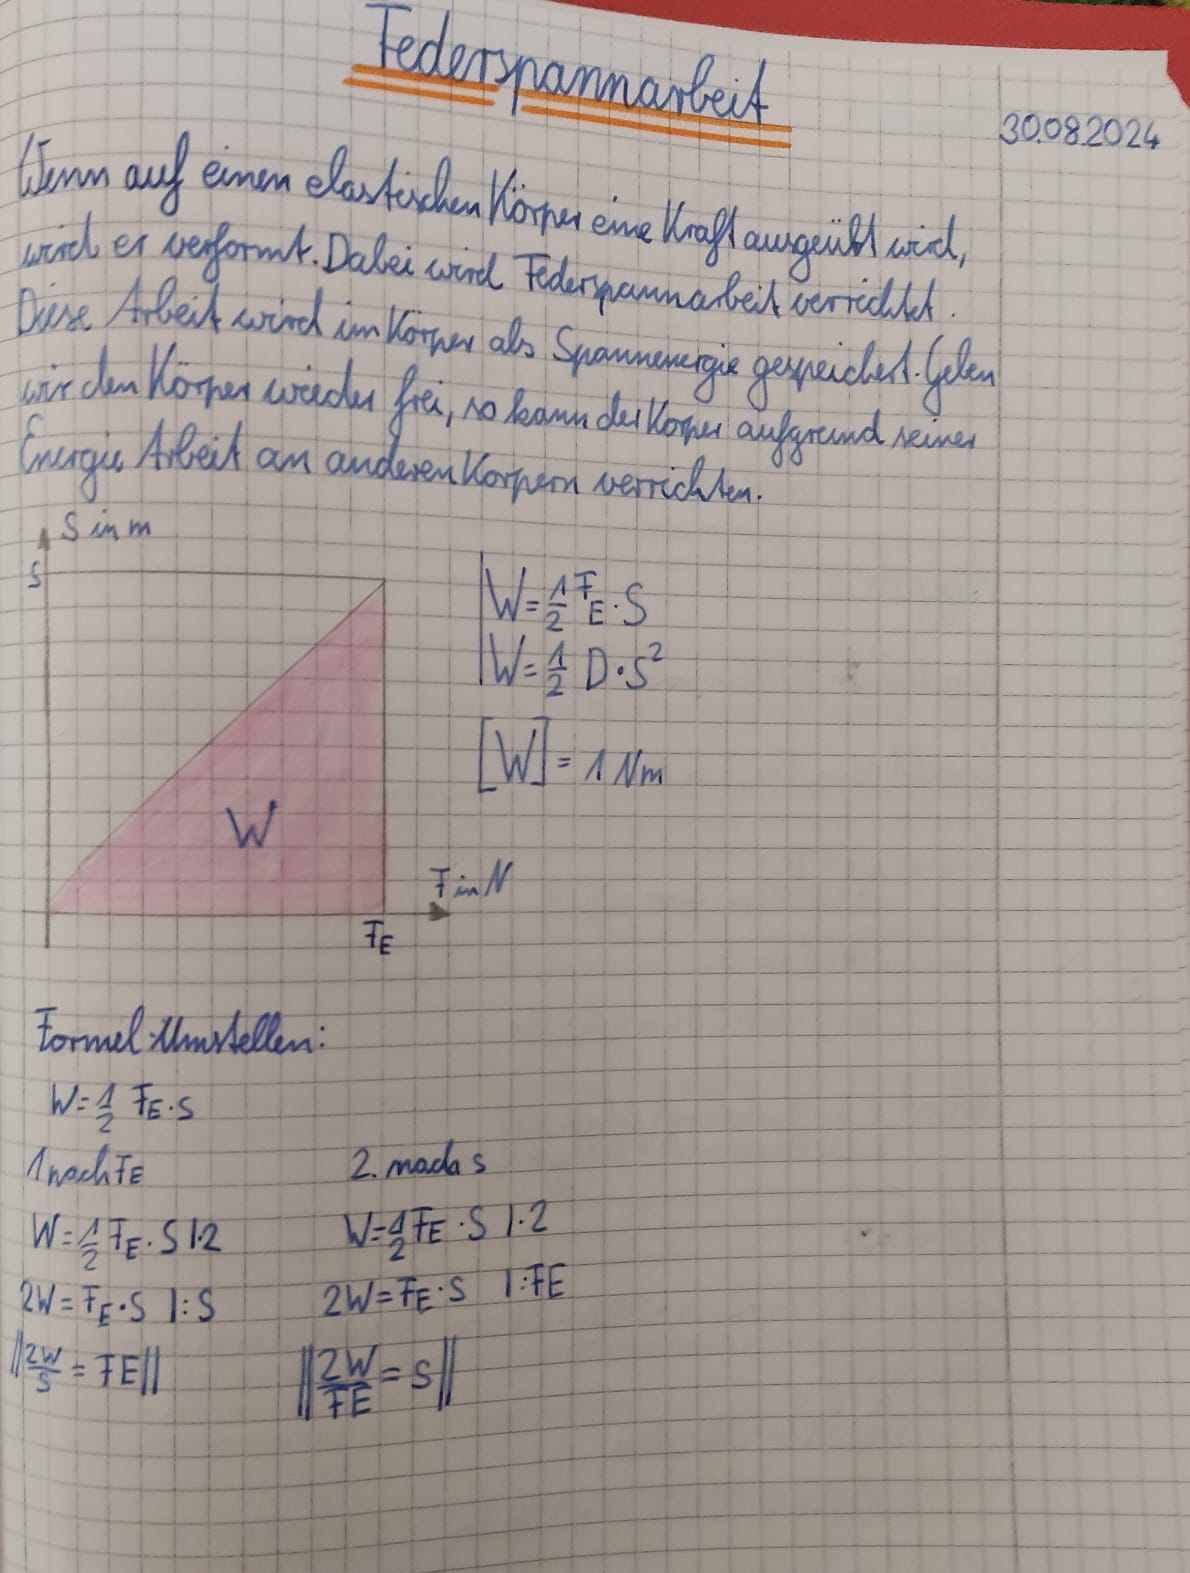 Federspannarbeit
30.08.2024
Wenn auf einen elastischen Körper eine Kraft ausgeübt wird,
wird er verformt. Dabei wird Federspannarbeit verrichtet.
Diese Arbeit wird im Körper als Spannenergie gespeichert. Geben
wir den Körper wieder frei, so kann der Körper aufgrund seiner
Energie Arbeit an anderen Körpern verrichten.
S in m
S
W = 1/2 F_E · S
W = 1/2 D · S²
[W] = 1 Nm
W
F in N
F_E
Formel Umstellen:
W = 1/2 F_E · S
1 nach F_E
2. nach s
W = 1/2 F_E · S |·2
W = 1/2 F_E · S |·2
2W = F_E · S |: S
2W = F_E · S |: FE
||2W/S = FE||
||2W/FE = S||